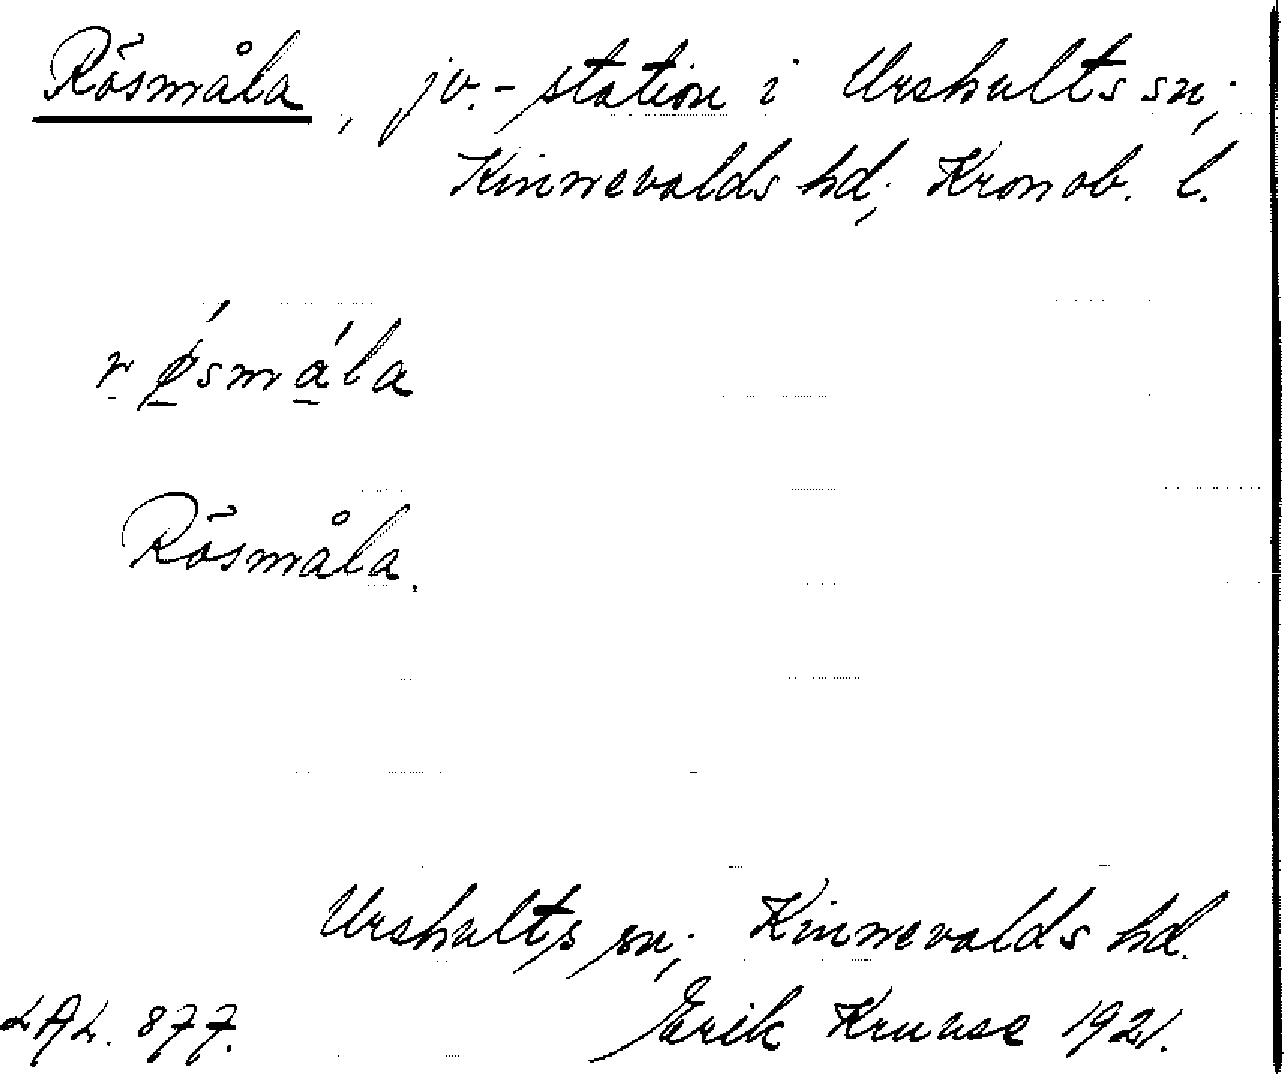 Rösmåla, jv.-station i Urshults sn,
Kinnevalds hd, Kronob. l.
rǿsmála
Rösmåla.
Urshults sn, Kinnevalds hd.
LAL. 877. Erik Kruuse 1921.